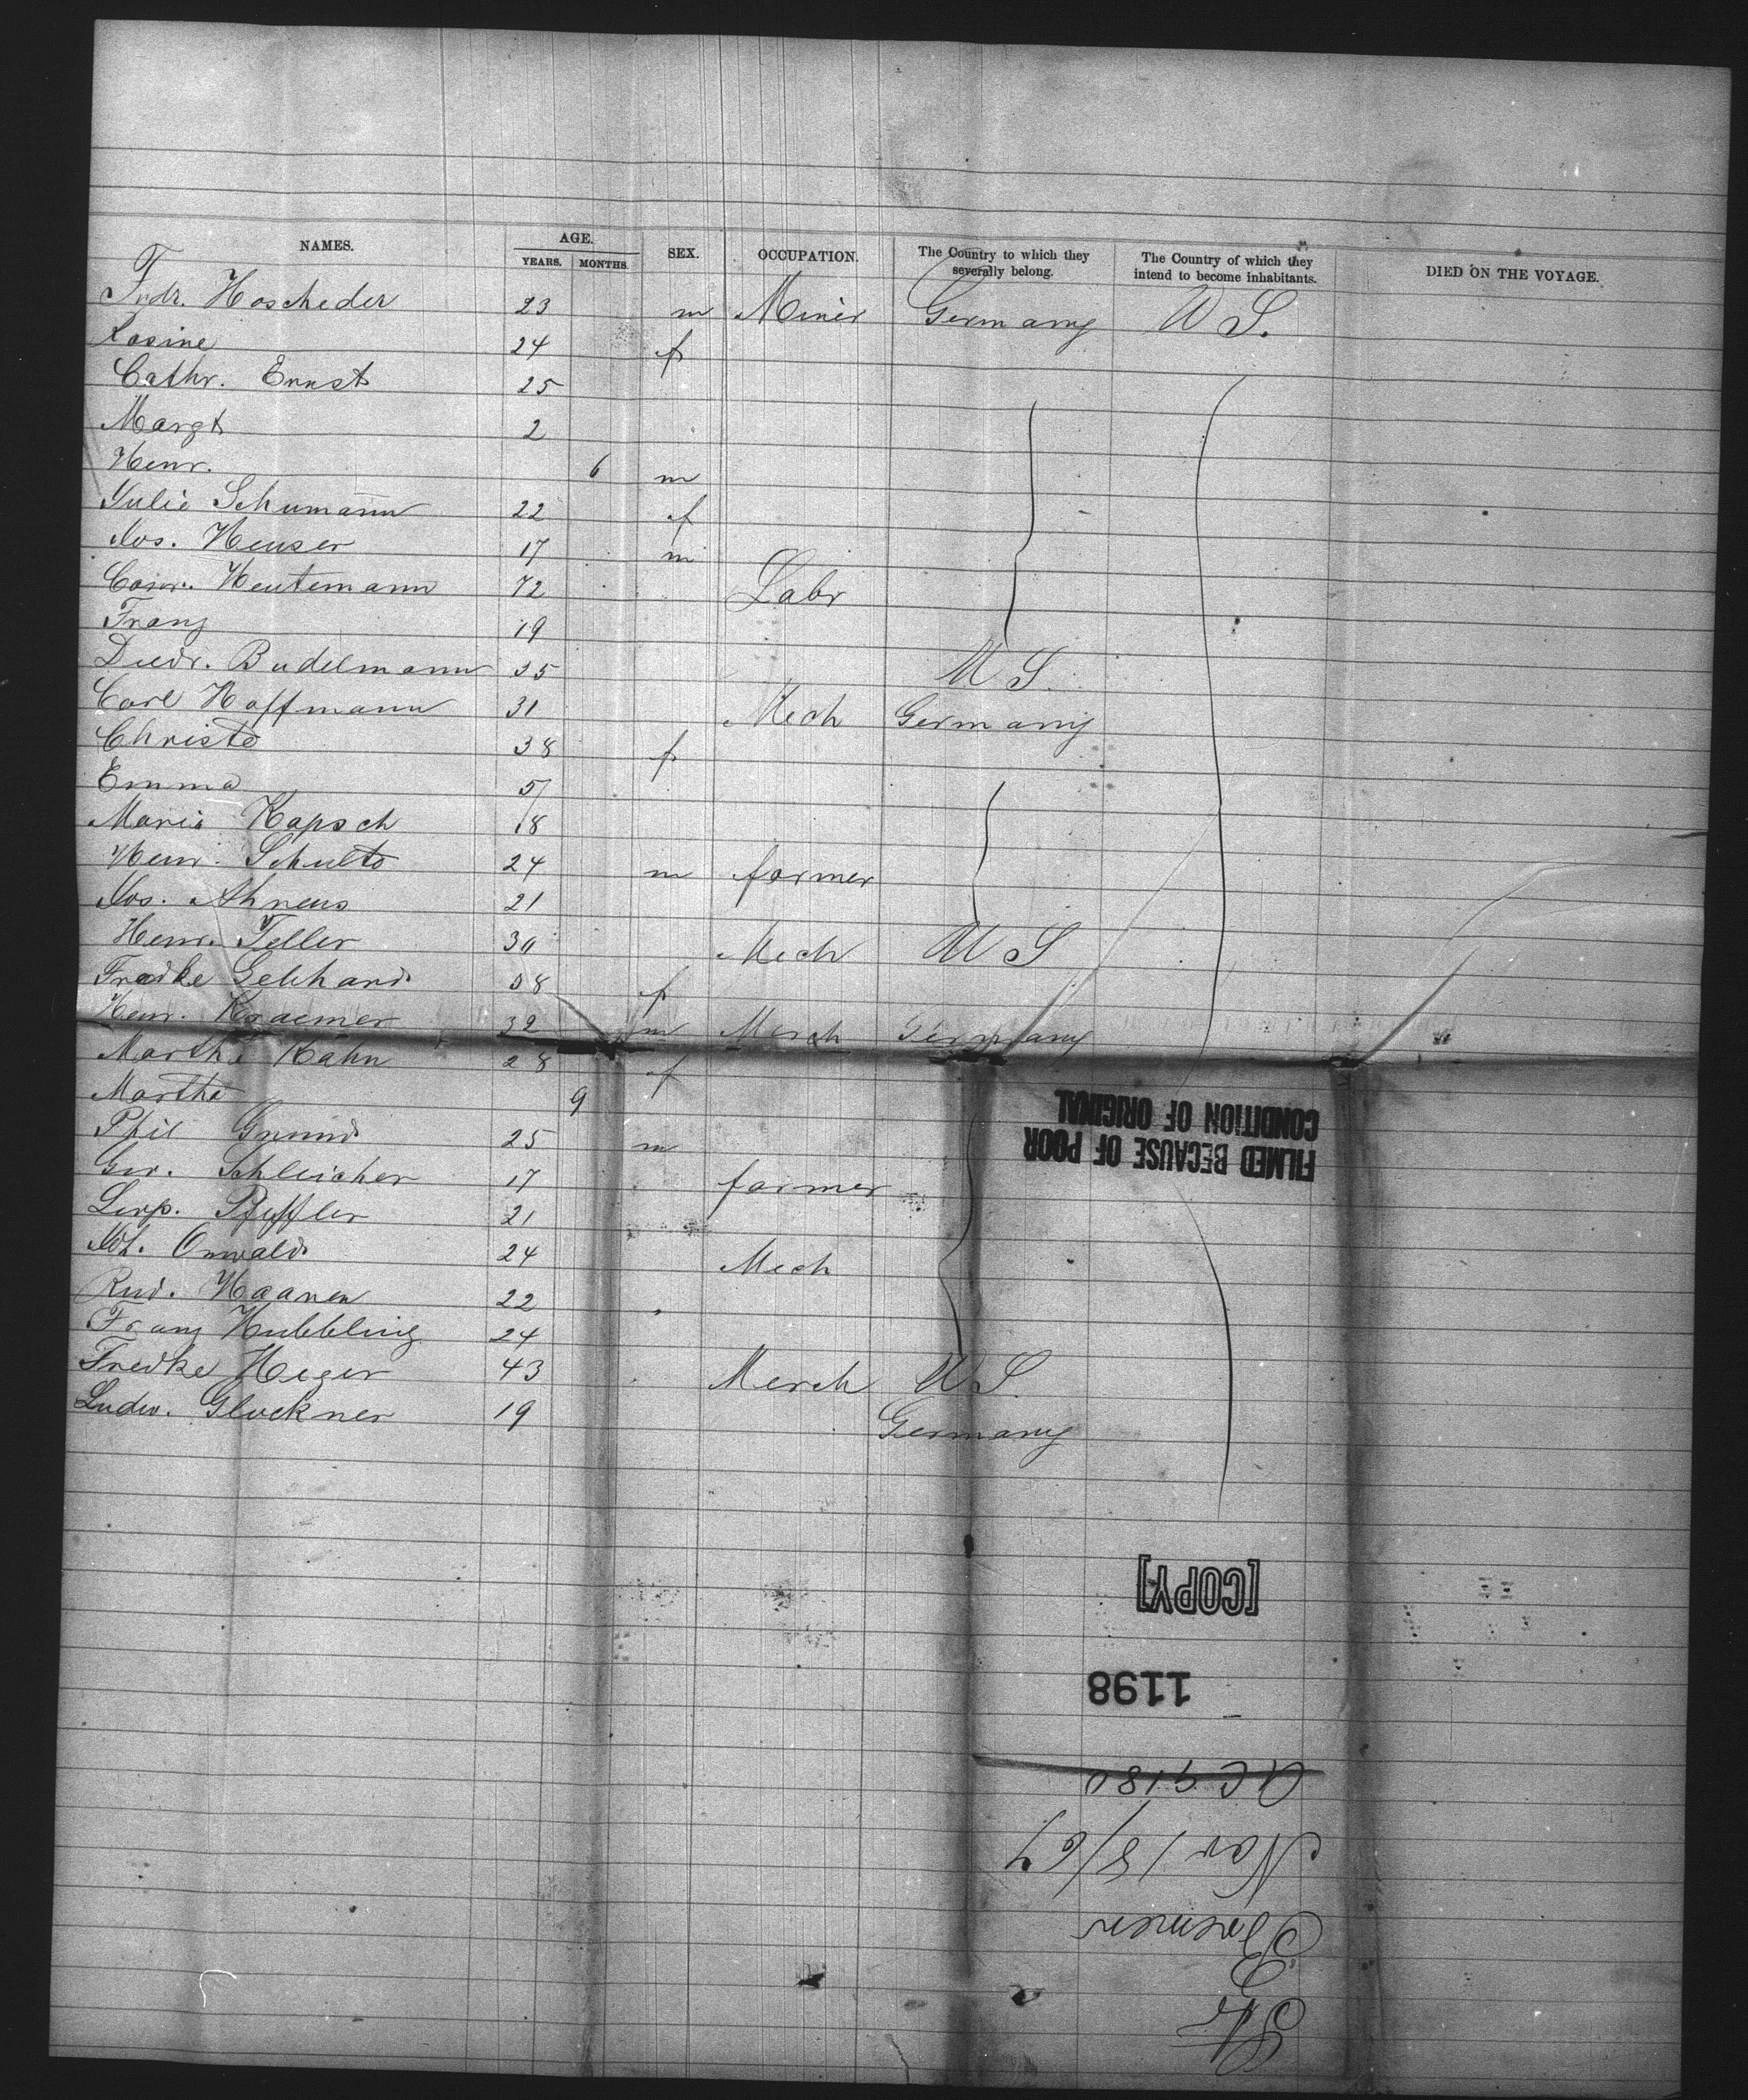 NAMES. AGE. YEARS. MONTHS. SEX. OCCUPATION. The Country to which they severally belong. The Country of which they intend to become inhabitants. DIED ON THE VOYAGE.
Frdr. Hoscheder 23 m Miner Germany U S.
Rosine 24 f
Cathr. Ernst 25
Margt 2
Henr. 6 m
Julie Schumann 22 f
Jos. Heuser 17 m
Heutemann 72 Labr
Franz 19
Diedr. Budelmann 35 U S.
Carl Hoffmann 31 Mech Germany
Christe 38 f
Emma 5
Marie Kapsch 18
Henr. Schulte 24 m farmer
Jos. Ahrens 21
Henr. Teller 30 Mech U S
Fredke Gebhard 38 f
Henr. Kraemer 32 m Merch Germany
Marthe Kahn 28 f
Marthe 9
Phil Grund 25 m
Schleicher 17 farmer
Pfeffler 21
Joh. 24 Mech
Rud. Haanen 22
Franz Hubbling 24
Fredke Heger 43 Merch U S.
Ludw. Glockner 19 Germany
FILMED BECAUSE OF POOR
CONDITION OF ORIGINAL
[COPY]
1198
Str
Bremen
Nov 18/67